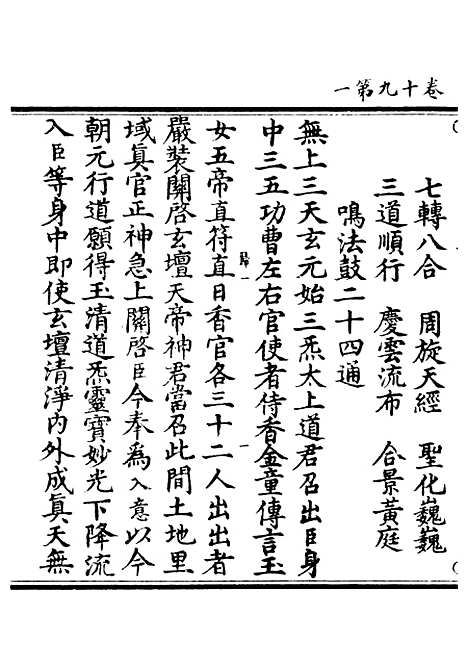 卷十九第一
七轉八合　周旋天經　聖化巍巍
三道順行　慶雲流布　合景黃庭
鳴法鼓二十四通
無上三天玄元始三炁太上道君召出臣身
中三五功曹左右官使者侍香金童傳言玉
女五帝直符直日香官各三十二人出出者
嚴裝關啓玄壇天帝神君當召此間土地里
域眞官正神急上關啓臣今奉為入意以今
朝元行道願得玉清道炁靈寶妙光下降流
入臣等身中即使玄壇清淨內外成眞天無